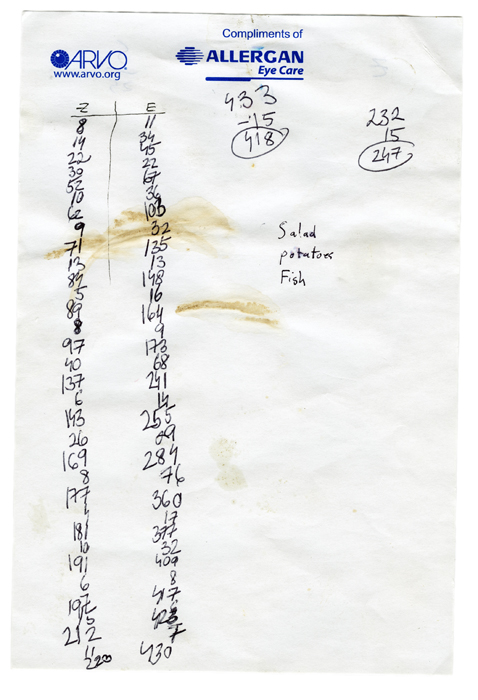 Compliments of
ARVO
www.arvo.org
ALLERGAN
Eye Care
Z E
8 11
14 34
22 45
30 22
52 67
10 36
62 103
9 32
71 135
13 13
84 148
5 16
89 164
8 9
97 173
40 68
137 241
6 14
143 255
26 29
169 284
8 76
177 360
17
181 377
10 32
191 409
6 8
197 417
15
212 7
430
220
433
-15
418
232
15
247
Salad
potatoes
Fish